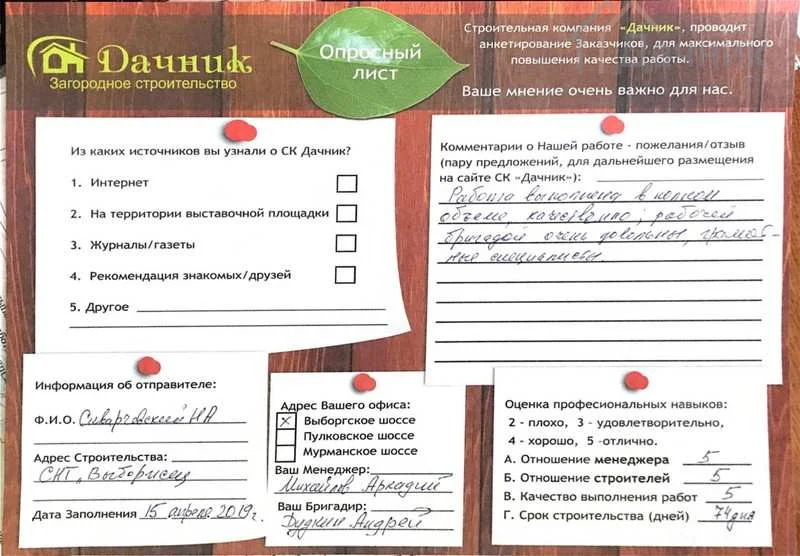 Дачник
Загородное строительство
Опросный
лист
Строительная компания «Дачник», проводит
анкетирование Заказчиков, для максимального
повышения качества работы.
Ваше мнение очень важно для нас.
Из каких источников вы узнали о СК Дачник?
1. Интернет
2. На территории выставочной площадки
3. Журналы/газеты
4. Рекомендация знакомых/друзей
5. Другое
Комментарии о Нашей работе - пожелания/отзыв
(пару предложений, для дальнейшего размещения
на сайте СК «Дачник»):
Работа выполнена в полном
объеме, качественно; рабочей
бригадой очень довольны, грамот-
ные специалисты.
Информация об отправителе:
Ф.И.О. НА
Адрес Строительства:
СНТ „Выборжец
Дата Заполнения 15 апреля 2019г.
Адрес Вашего офиса:
x Выборгское шоссе
Пулковское шоссе
Мурманское шоссе
Ваш Менеджер:
Михайлов Аркадий
Ваш Бригадир:
Андрей
Оценка професиональных навыков:
2 - плохо, 3 - удовлетворительно,
4 - хорошо, 5 -отлично.
А. Отношение менеджера 5
Б. Отношение строителей 5
В. Качество выполнения работ 5
Г. Срок строительства (дней) 74дня